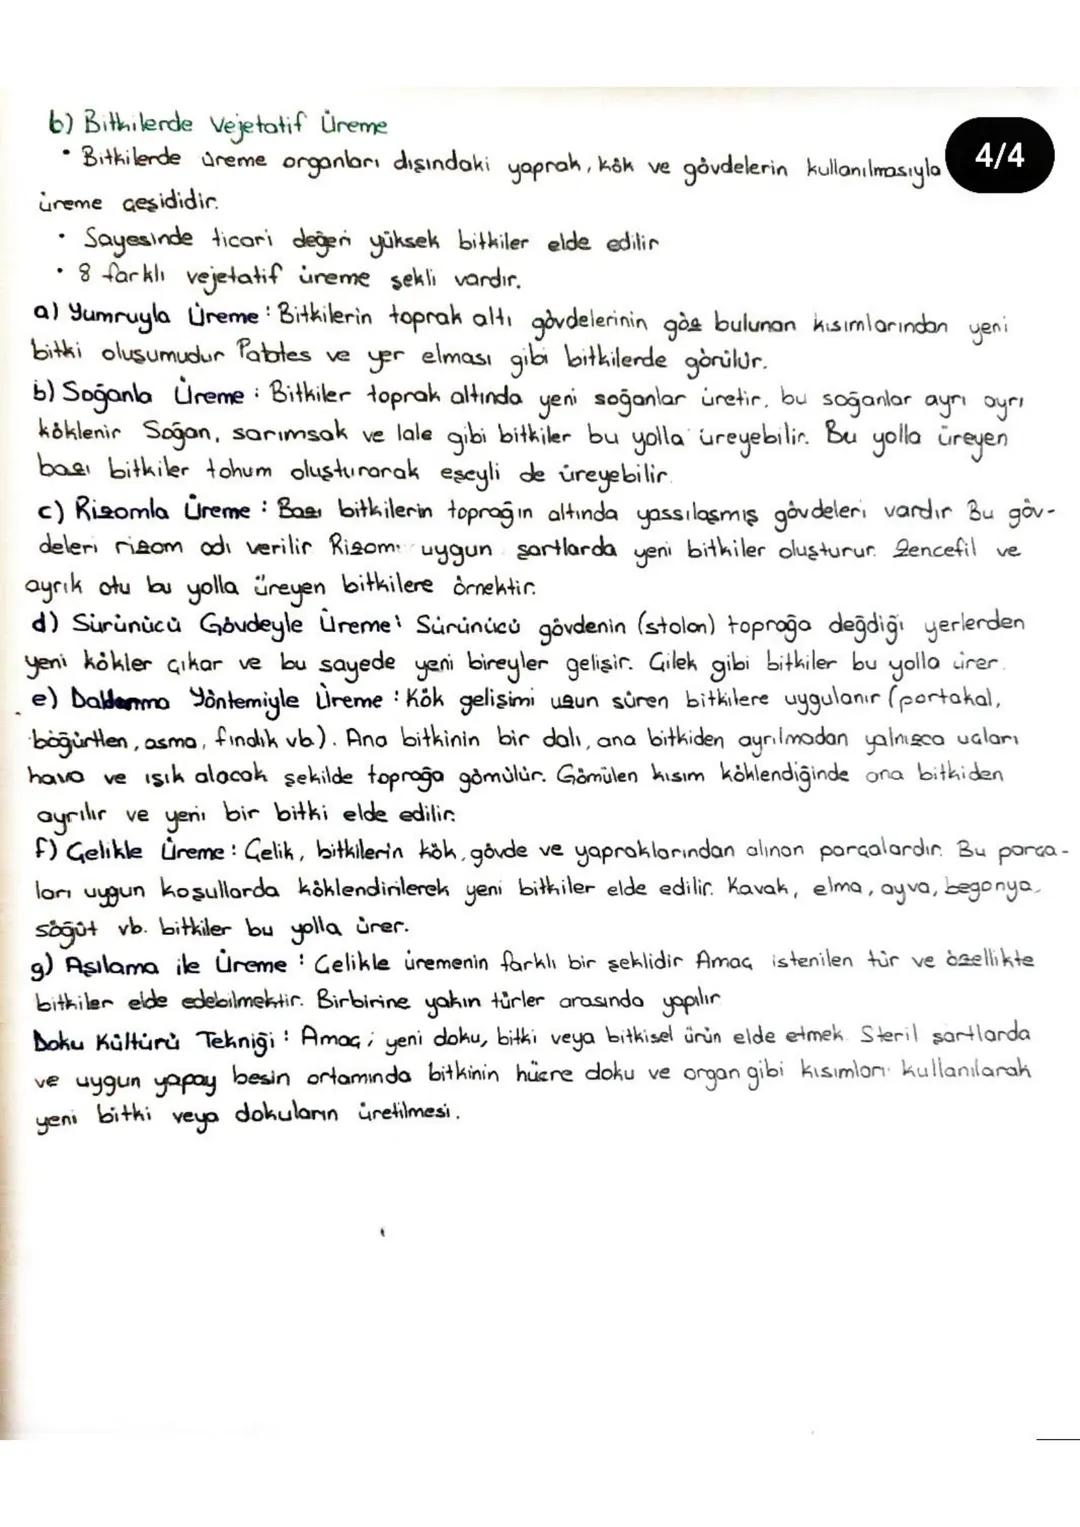 b) Bitkilerde Vejetatif Üreme
4/4
• Bitkilerde üreme organları dışındaki yaprak, kök ve gövdelerin kullanılmasıyla
üreme çeşididir.
• Sayesinde ticari değeri yüksek bitkiler elde edilir
• 8 farklı vejetatif üreme şekli vardır.
a) Yumruyla Üreme : Bitkilerin toprak altı gövdelerinin göz bulunan kısımlarından yeni
bitki oluşumudur Patates ve yer elması gibi bitkilerde görülür.
b) Soğanla Üreme : Bitkiler toprak altında yeni soğanlar üretir, bu soğanlar ayrı ayrı
köklenir Soğan, sarımsak ve lale gibi bitkiler bu yolla üreyebilir. Bu yolla üreyen
bazı bitkiler tohum oluşturarak eşeyli de üreyebilir.
c) Rizomla Üreme : Bazı bitkilerin toprağın altında yassılaşmış gövdeleri vardır Bu göv-
deleri rizom adı verilir Rizom uygun şartlarda yeni bitkiler oluşturur. Zencefil ve
ayrık otu bu yolla üreyen bitkilere örnektir.
d) Sürünücü Gövdeyle Üreme : Sürünücü gövdenin (stolon) toprağa değdiği yerlerden
yeni kökler çıkar ve bu sayede yeni bireyler gelişir. Çilek gibi bitkiler bu yolla ürer.
e) Daldırma Yöntemiyle Üreme : Kök gelişimi uzun süren bitkilere uygulanır (portakal,
böğürtlen, asma, fındık vb.). Ana bitkinin bir dalı, ana bitkiden ayrılmadan yalnızca uçları
hava ve ışık alacak şekilde toprağa gömülür. Gömülen kısım köklendiğinde ana bitkiden
ayrılır ve yeni bir bitki elde edilir.
f) Çelikle Üreme : Çelik, bitkilerin kök, gövde ve yapraklarından alınan parçalardır. Bu parça-
ları uygun koşullarda köklendirilerek yeni bitkiler elde edilir. Kavak, elma, ayva, begonya,
söğüt vb. bitkiler bu yolla ürer.
g) Aşılama ile Üreme : Çelikle üremenin farklı bir şeklidir Amaç istenilen tür ve özellikte
bitkiler elde edebilmektir. Birbirine yakın türler arasında yapılır
Doku Kültürü Tekniği : Amaç; yeni doku, bitki veya bitkisel ürün elde etmek. Steril şartlarda
ve uygun yapay besin ortamında bitkinin hücre doku ve organ gibi kısımları kullanılarak
yeni bitki veya dokuların üretilmesi.